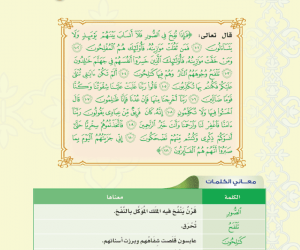 قال تعالى: ﴿فَإِذَا نُفِخَ فِي الصُّورِ فَلَا أَنسَابَ بَيْنَهُمْ يَوْمَئِذٍ وَلَا
يَتَسَاءَلُونَ فَمَن ثَقُلَتْ مَوَازِينُهُ فَأُولَٰئِكَ هُمُ الْمُفْلِحُونَ
وَمَنْ خَفَّتْ مَوَازِينُهُ فَأُولَٰئِكَ الَّذِينَ خَسِرُوا أَنفُسَهُمْ فِي جَهَنَّمَ خَالِدُونَ
تَلْفَحُ وُجُوهَهُمُ النَّارُ وَهُمْ فِيهَا كَالِحُونَ أَلَمْ تَكُنْ آيَاتِي تُتْلَىٰ
عَلَيْكُمْ فَكُنتُم بِهَا تُكَذِّبُونَ قَالُوا رَبَّنَا غَلَبَتْ عَلَيْنَا شِقْوَتُنَا وَكُنَّا
قَوْمًا ضَالِّينَ رَبَّنَا أَخْرِجْنَا مِنْهَا فَإِنْ عُدْنَا فَإِنَّا ظَالِمُونَ قَالَ
اخْسَئُوا فِيهَا وَلَا تُكَلِّمُونِ إِنَّهُ كَانَ فَرِيقٌ مِّنْ عِبَادِي يَقُولُونَ رَبَّنَا
آمَنَّا فَاغْفِرْ لَنَا وَارْحَمْنَا وَأَنتَ خَيْرُ الرَّاحِمِينَ فَاتَّخَذْتُمُوهُمْ سِخْرِيًّا حَتَّىٰ
أَنسَوْكُمْ ذِكْرِي وَكُنتُم مِّنْهُمْ تَضْحَكُونَ إِنِّي جَزَيْتُهُمُ الْيَوْمَ بِمَا
صَبَرُوا أَنَّهُمْ هُمُ الْفَائِزُونَ﴾
معاني الكلمات
الكلمة معناها
الصُّورِ قَرْنٌ يَنْفُخ فيه المَلَك المُوكّل بالنَّفْخ.
تَلْفَحُ تُحرق.
كَالِحُونَ عابسون قلصت شفاههم وبرزت أسنانهم.